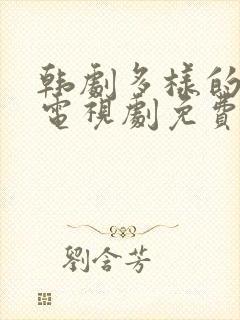 韩劇多樣的
電視劇免費
劉含芳